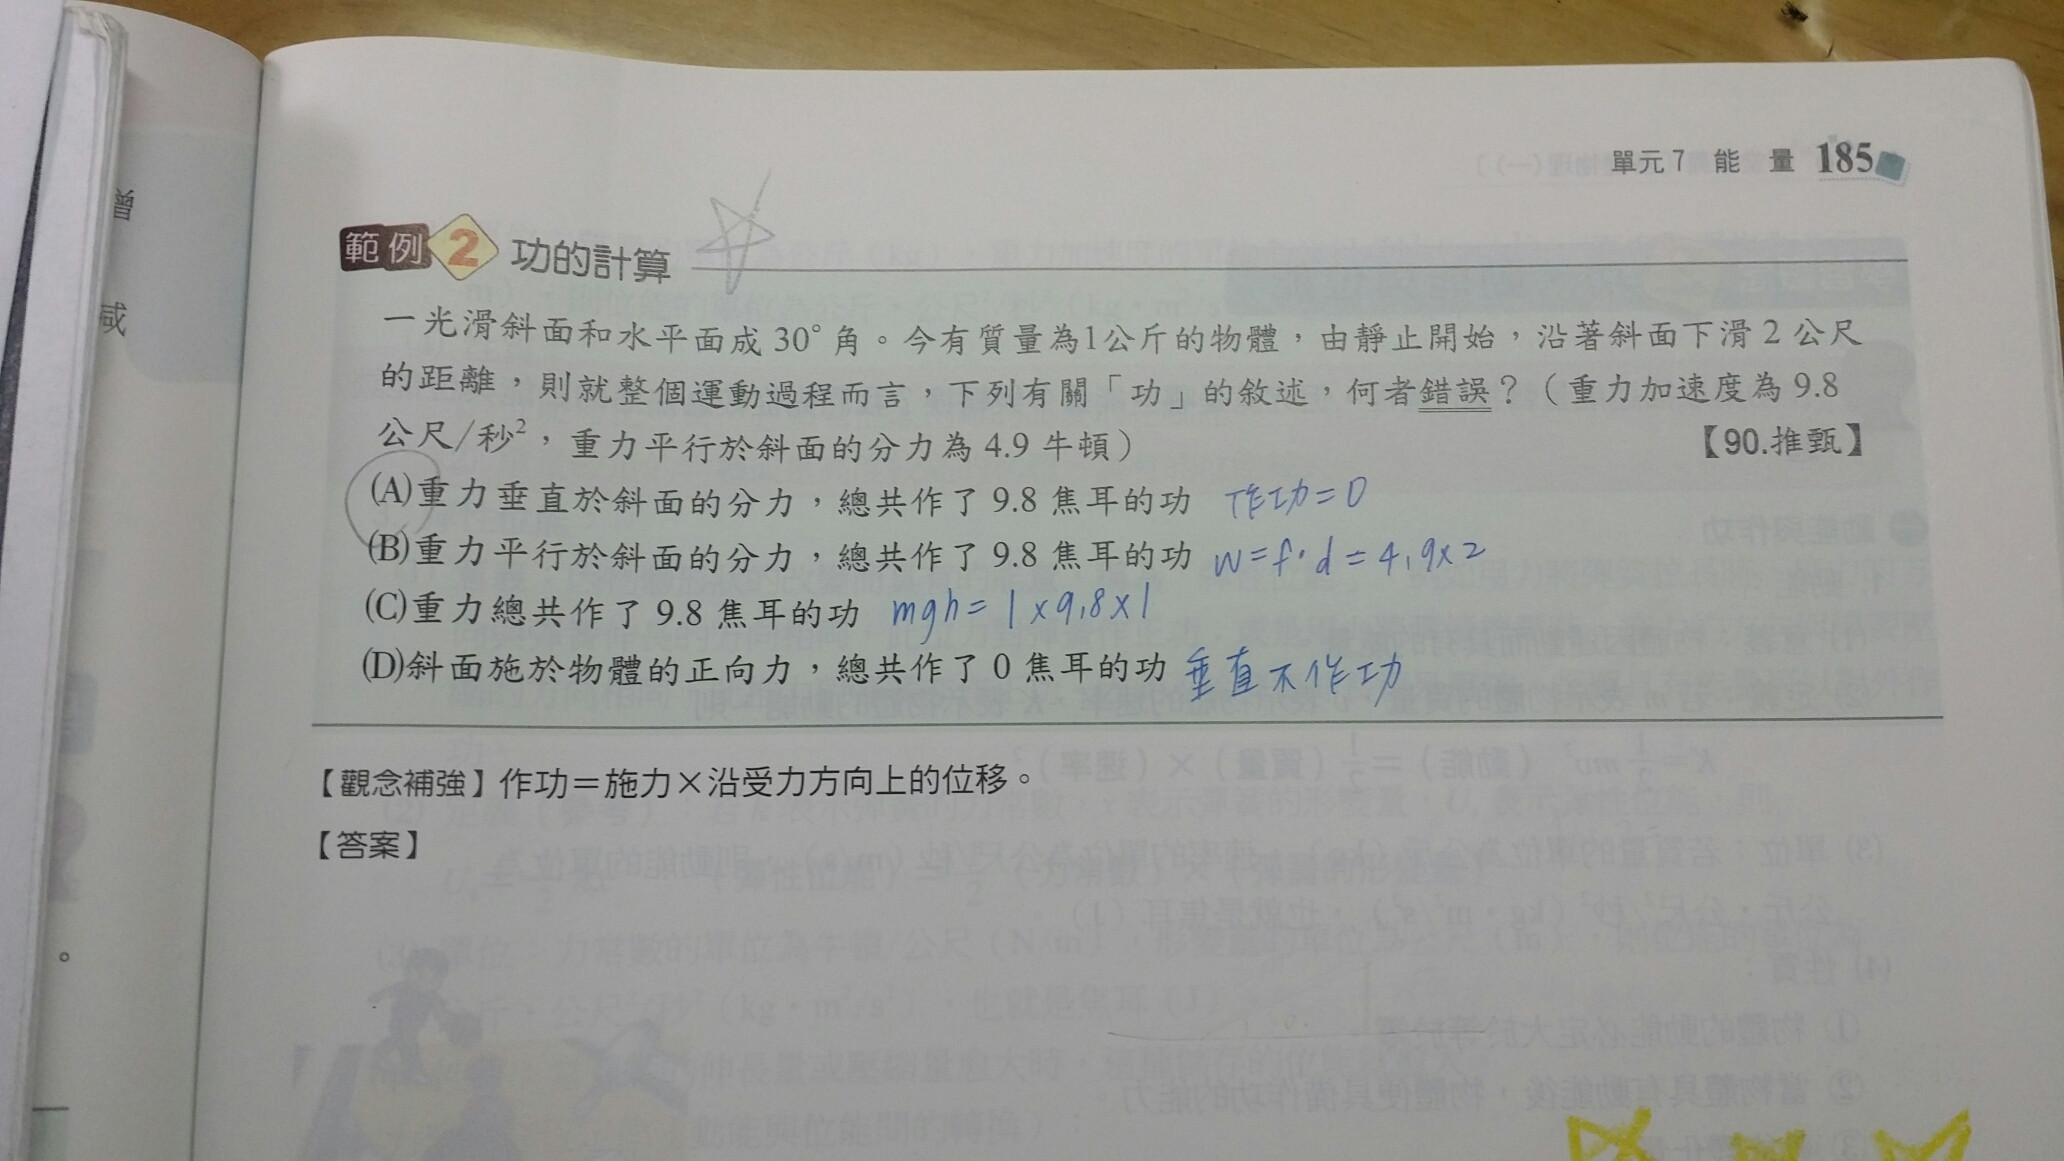 增
減
。
單元 7 能 量 185
範例 2 功的計算
一光滑斜面和水平面成 30° 角。今有質量為1公斤的物體，由靜止開始，沿著斜面下滑 2 公尺
的距離，則就整個運動過程而言，下列有關「功」的敘述，何者錯誤？（重力加速度為 9.8
公尺/秒²，重力平行於斜面的分力為 4.9 牛頓） 【90.推甄】
(A)重力垂直於斜面的分力，總共作了 9.8 焦耳的功 作功=0
(B)重力平行於斜面的分力，總共作了 9.8 焦耳的功 W=f·d=4.9x2
(C)重力總共作了 9.8 焦耳的功 mgh=1x9.8x1
(D)斜面施於物體的正向力，總共作了 0 焦耳的功 垂直不作功
【觀念補強】作功＝施力×沿受力方向上的位移。
【答案】